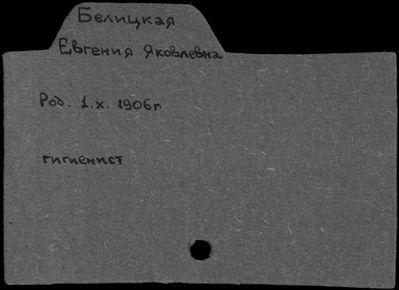 Белицкая
Евгения Яковлевна
Род. 1.х. 1906г.
гигиенист